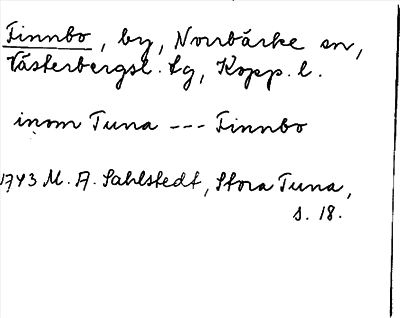 Finnbo, by, Norrbärke sn,
Västerbergsl. tg, Kopp. l.
inom Tuna --- Finnbo
1743 M. A. Sahlstedt, Stora Tuna,
s. 18.